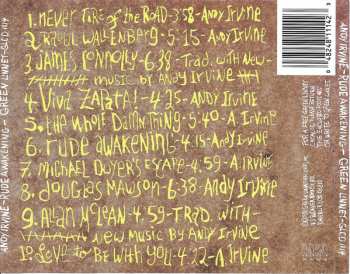 1. NEVER TIRE OF the ROAD-3.58-ANDY IRVINE
2 RAOUL WALLENBERG-5-15-ANDY IRVINE
3. JAMES CONNOLLY-6.38-TRAD. WITH NEW
music BY ANDY IRVINE
4. VIVE ZAPATA!-4.35-ANDY IRVINE
5. the WHOLE DAMN THING-5.40-A. IRVINE
6. rude AWAKENING-4.15-ANDY IRVINE
7. MICHAEL DWYER'S ESCAPE-4.59-A IRVINE
8. douGLAS MAWSON-6.38-ANDY IRVINE
9. ALLAN McLEAN-4.59-TRAD. WITH
NEW MUSIC BY ANDY IRVINE
10. LOVE to BE WITH YOU.4.22-A IRVINE
ANDY IRVINE-RUDE AWAKENING-GREEN LINNET-GLCD 1114
ANDY IRVINE-RUDE AWAKENING-GREEN LINNET-GLCD 1114
48248 11142